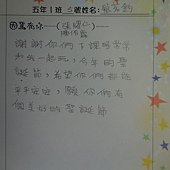 五年1班 號姓名:
謝謝你們下課時常
和我一起玩,今年的聖
誕節,希望你們都能
平平安安,願你們有
個美好的聖誕節